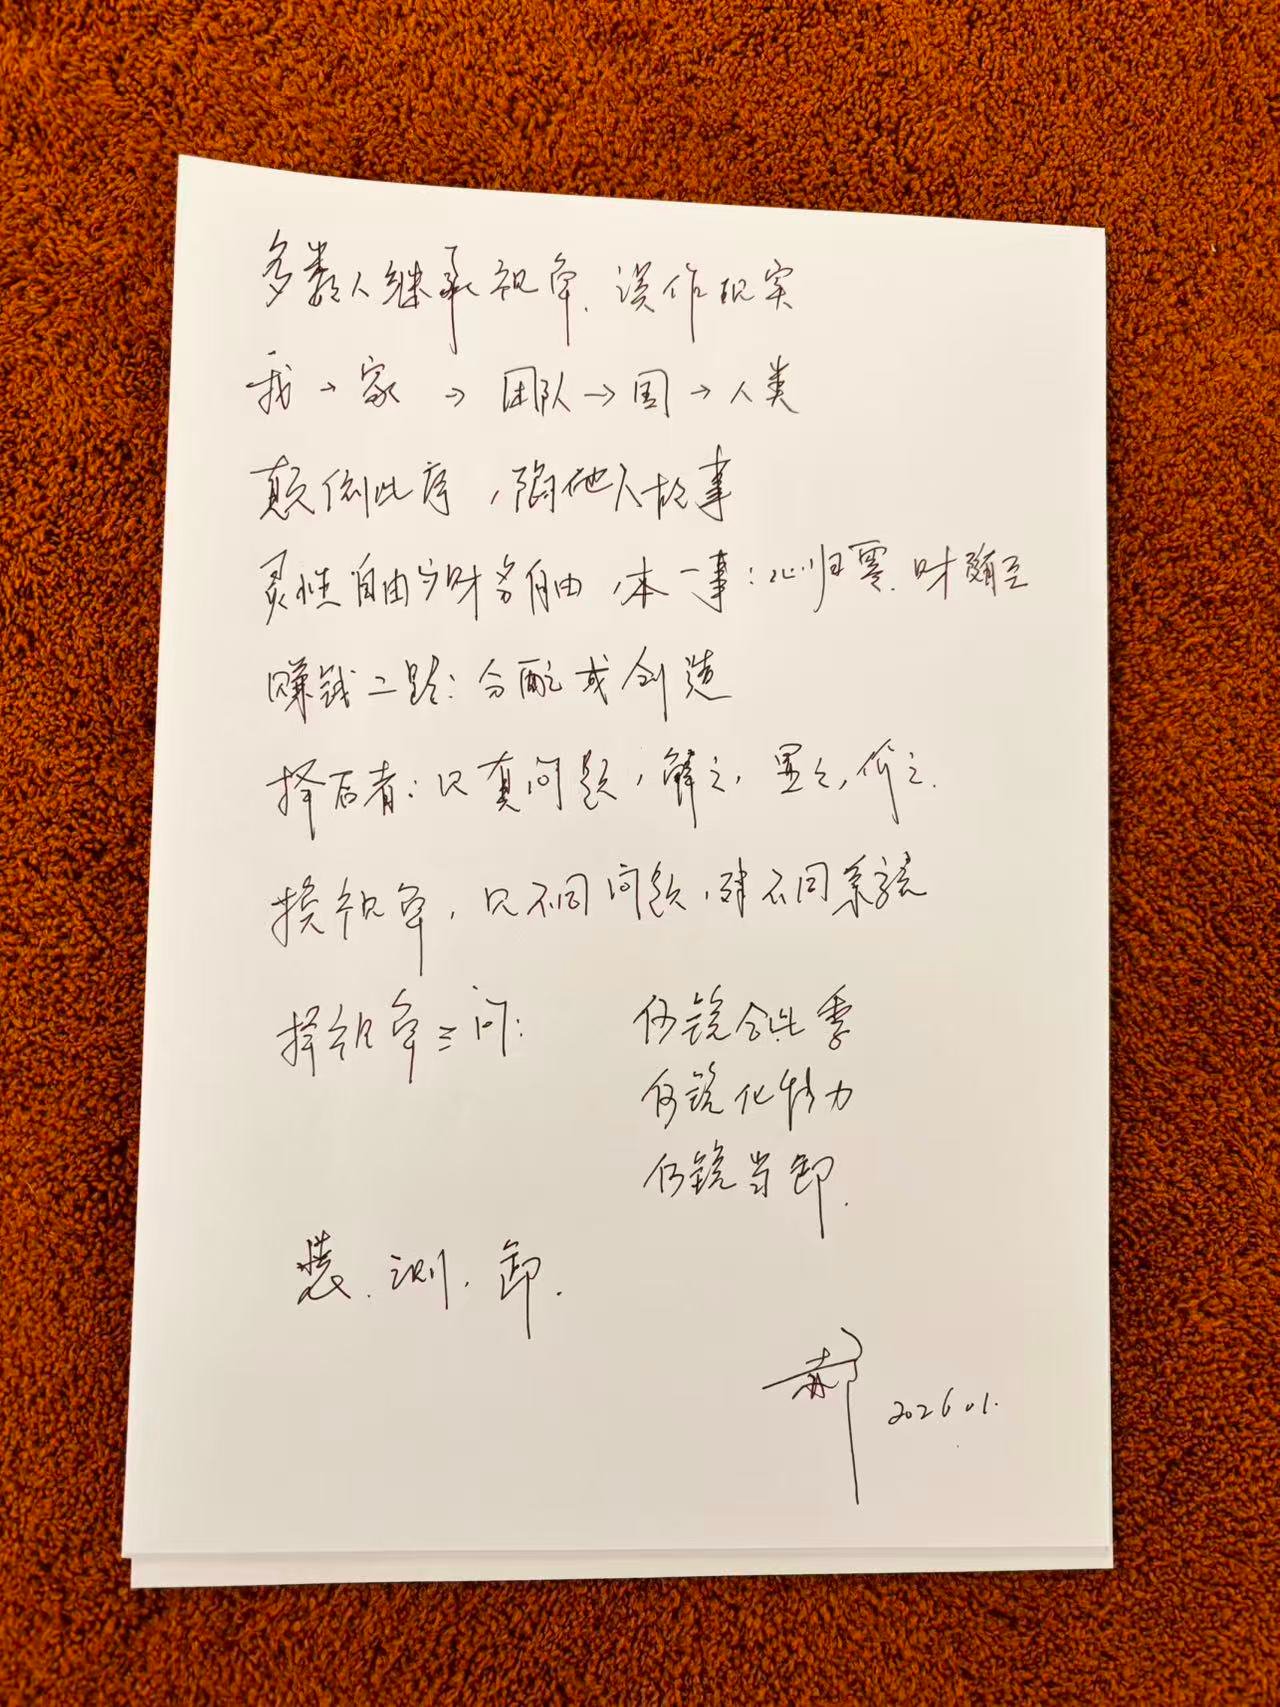 多数人继承视角，误作现实
我→家→团队→国→人类
颠倒此序，陷他人故事
灵性自由与财务自由，本一事：心归零，财随至
赚钱二路：分配或创造
择后者：见真问题，解之，显之，价之.
换视角，见不同问题，建不同系统
择视角三问：
何镜合此季
何镜化特力
何镜当卸.
装，测，卸.
郝 2026.01.